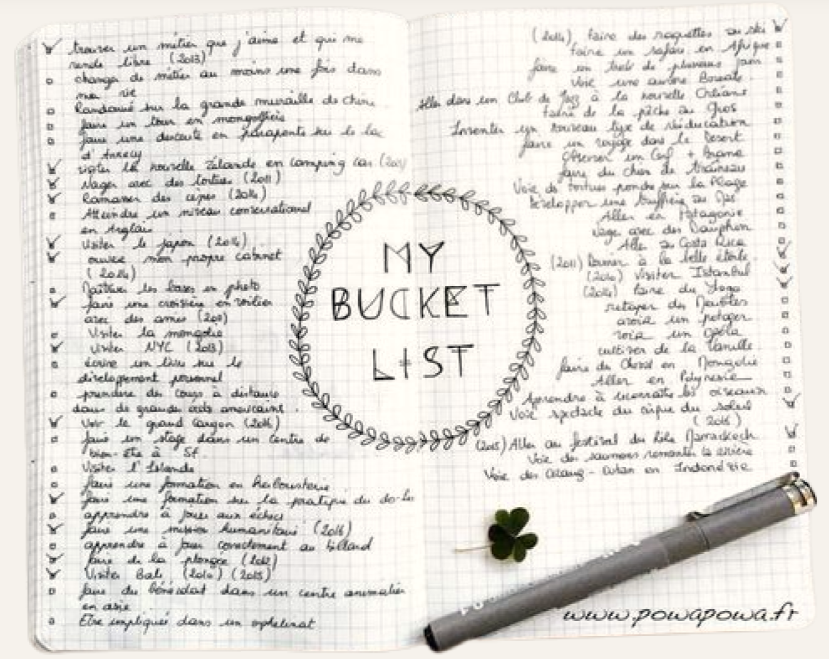 trouver un métier que j'aime et qui me
rende libre (2013)
changer de métier au moins une fois dans
ma vie
Randonné sur la grande muraille de chine
faire un tour en mongolfière
faire une descente en parapente sur le lac
d'Annecy
visiter la nouvelle Zélande en camping car
Nager avec des tortues (2011)
Ramasser des cèpes (2014)
Atteindre un niveau conversationnel
en Anglais
Visiter le Japon (2014)
ouvrir mon propre cabinet
(2014)
Maîtriser les bases en photo
faire une croisière en voilier
avec des amis
Visiter la mongolie
Visiter NYC (2013)
écrire un livre sur le
développement personnel
prendre des cours à distance
dans de grandes américaines
Voir le grand canyon (2016)
faire un stage dans un centre de
bien-être à SF
Visiter l'Islande
faire une formation en herboristerie
faire une formation sur la pratique du do-in
apprendre à jouer aux échecs
faire une mission humanitaire (2016)
apprendre à jouer correctement au billard
faire de la plongée (2012)
Visiter Bali (2010) (2015)
faire du bénévolat dans un centre animalier
en asie
Etre impliquée dans un orphelinat
MY
BUCKET
LIST
(2014) faire des raquettes au ski
faire un safari en Afrique
faire un trek de plusieurs jours
Voir une aurore Boréale
Aller dans un Club de Jazz à la nouvelle Orléans
faire de la pêche au Gros
Inventer un nouveau type de rééducation
faire un voyage dans le Désert
Observer un Cerf + Brame
faire du chien de traineau
Voir des tortues pondre sur la Plage
Développer une
Aller en Patagonie
nager avec des Dauphins
Aller au Costa Rica
(2011) Dormir à la belle étoile
(2010) Visiter Istanbul
(2014) faire du Yoga
retaper des Meubles
avoir un potager
voir un Opéra
cultiver de la Vanille
faire du Cheval en Mongolie
Aller en Polynésie
Apprendre à reconnaître les oiseaux
Voir spectacle du cirque du soleil
(2016)
(2015) Aller au festival du Rire Marrakech
Voir des saumons remonter la rivière
Voir des Orang-Outan en Indonésie
www.powapowa.fr